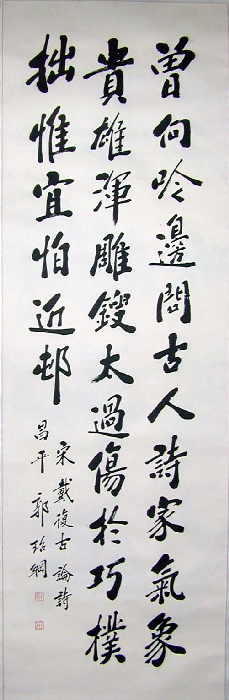 曾向吟邊問古人詩家氣象
貴雄渾雕鎪太過傷於巧樸
拙惟宜怕近邨
宋戴復古論詩
昌平郭紹綱